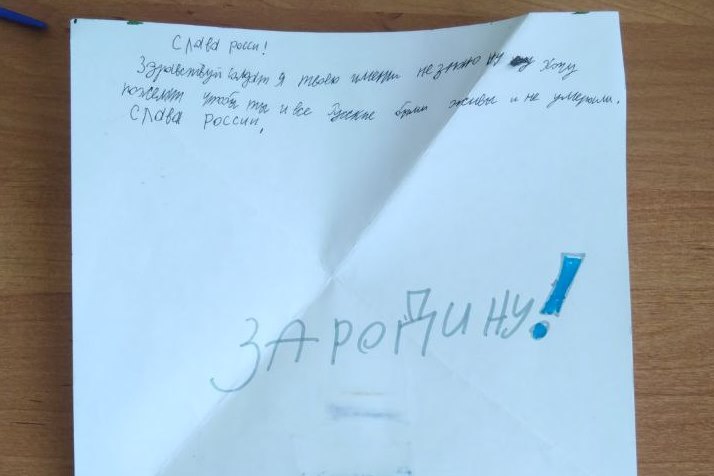 Слава росси!
Здравствуй солдат я твоего имени не знаю ну хочу
пожелат чтобы ты и все Русские были живы и не умерали.
Слава России,
ЗА РОДИНУ!